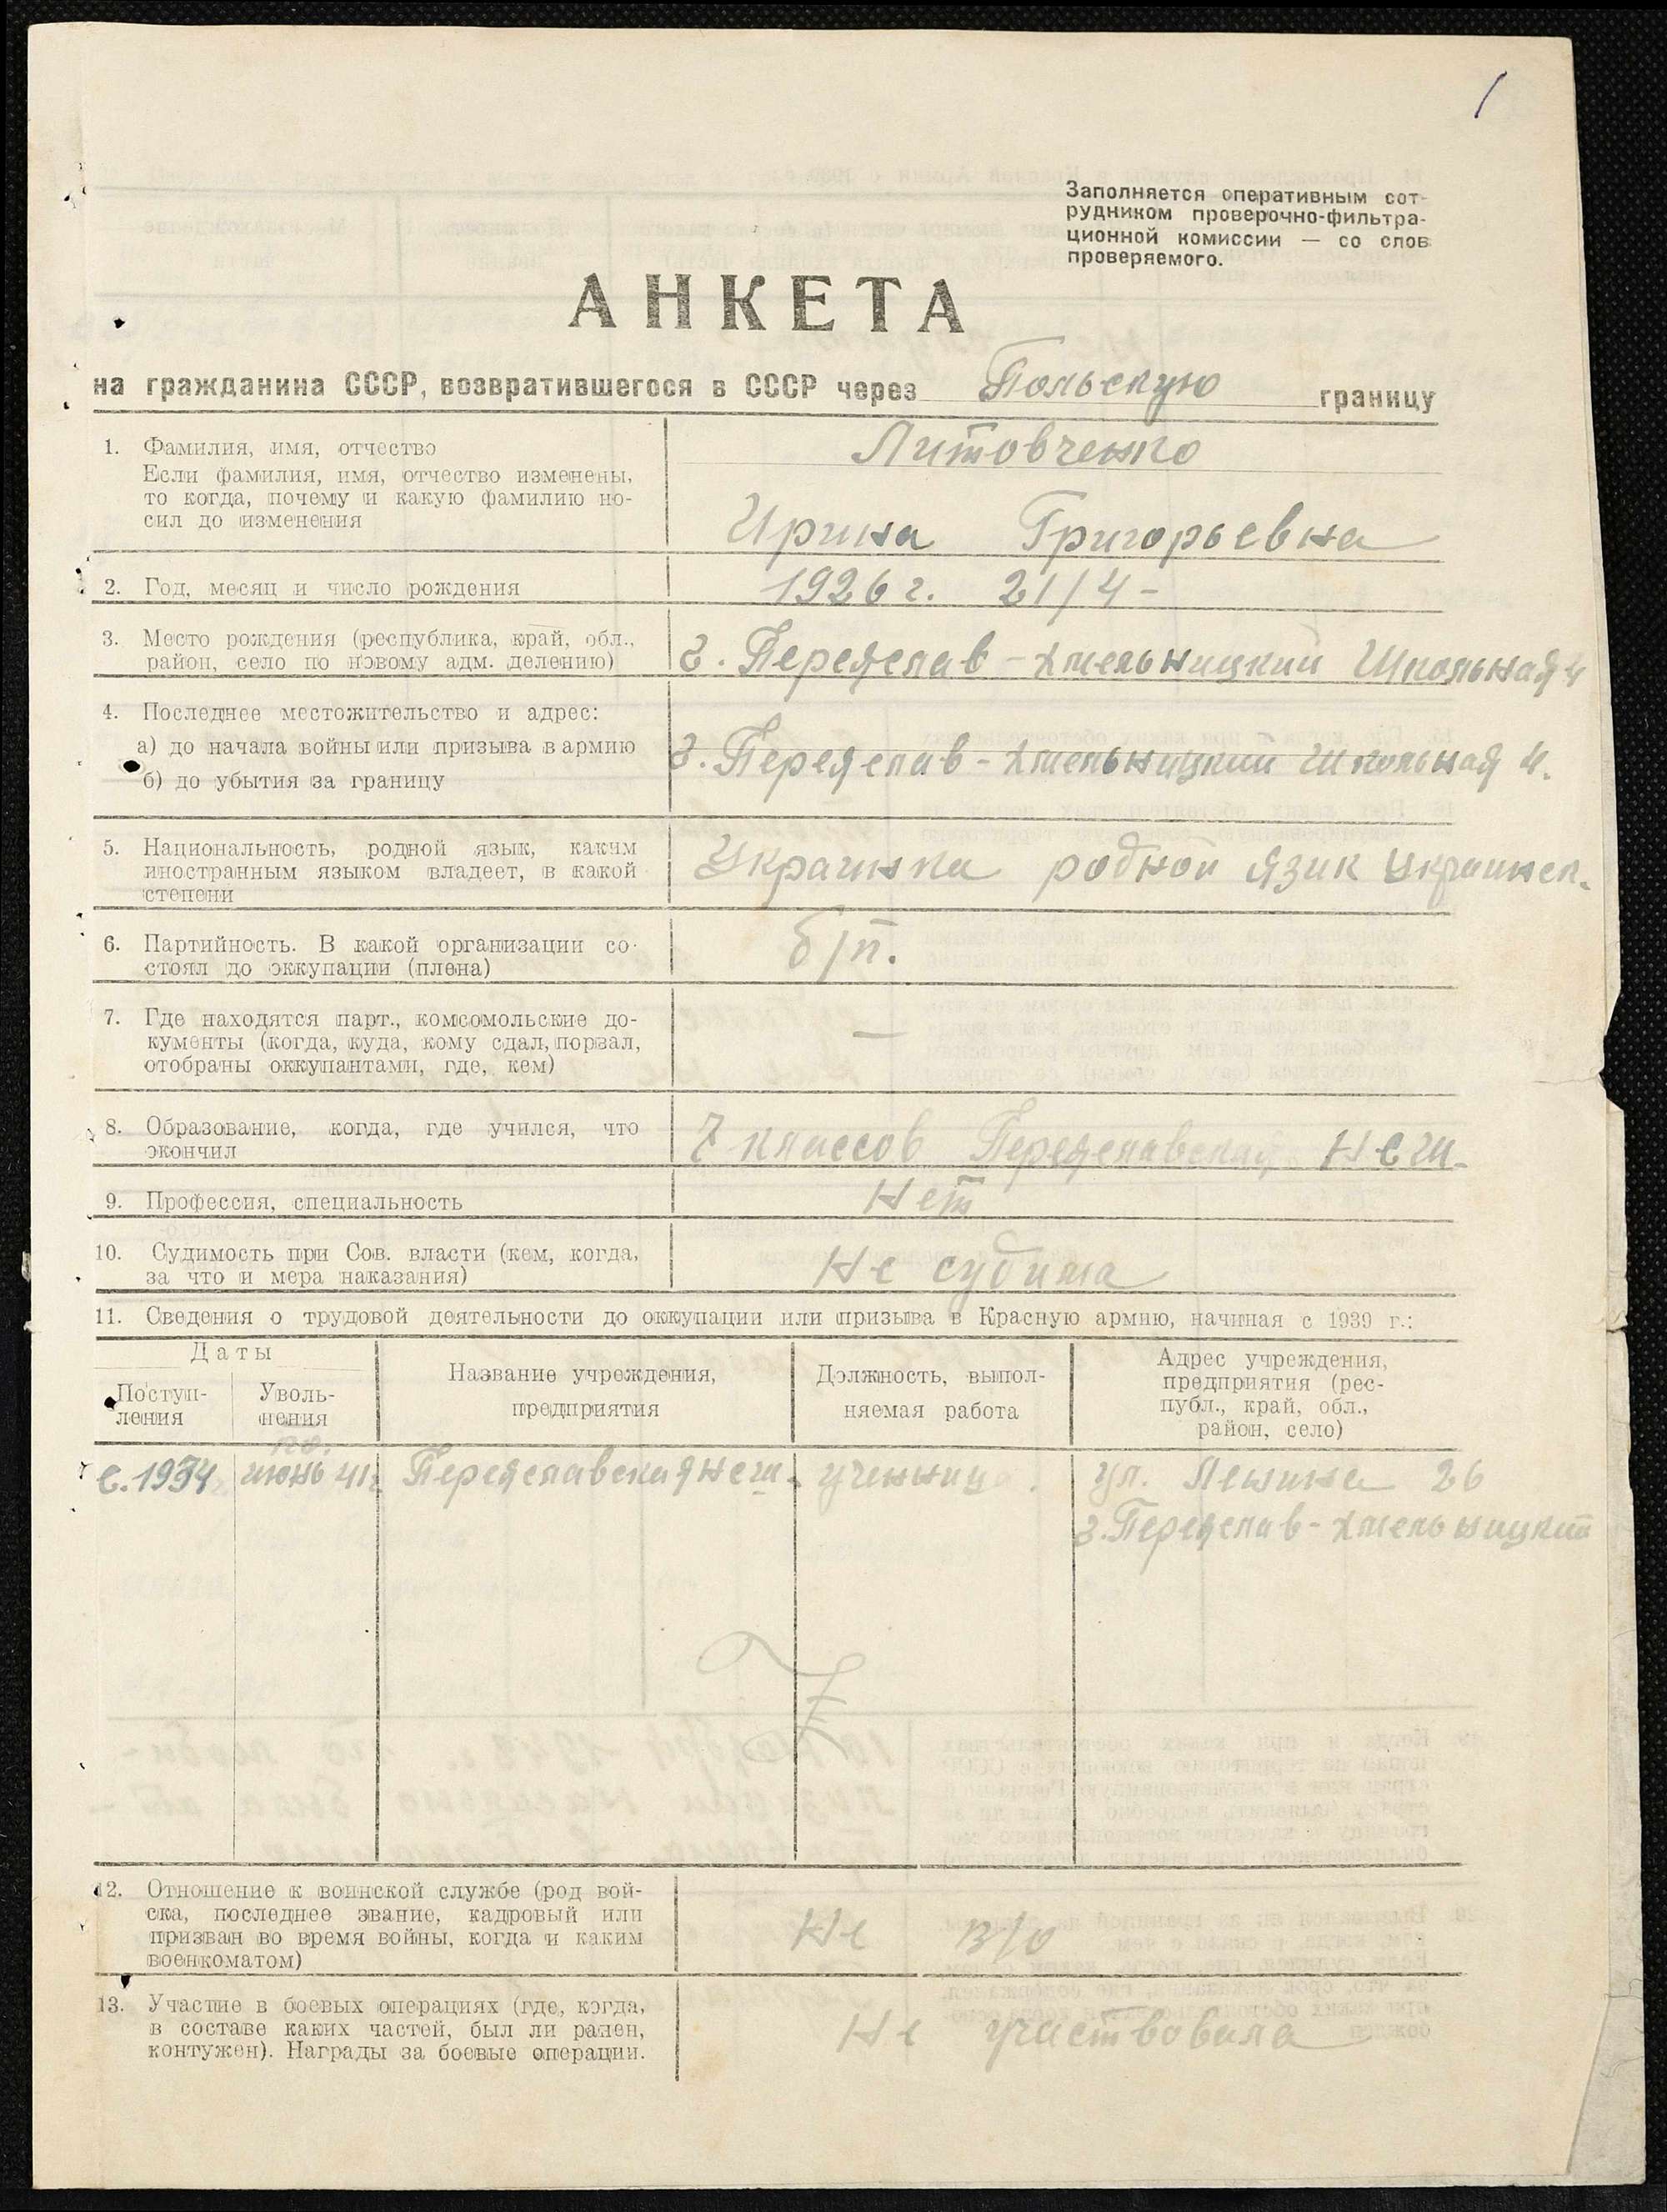 1
Заполняется оперативным сот-
рудником проверочно-фильтра-
ционной комиссии — со слов
проверяемого.
АНКЕТА
на гражданина СССР, возвратившегося в СССР через Польскую границу
1. Фамилия, имя, отчество
Если фамилия, имя, отчество изменены,
то когда, почему и какую фамилию но-
сил до изменения
Литовченко
Ирина Григорьевна
2. Год, месяц и число рождения
1926 г. 21/4 -
3. Место рождения (республика, край, обл.,
район, село по новому адм. делению)
г. Переяслав-Хмельницкий Школьная 4
4. Последнее местожительство и адрес:
а) до начала войны или призыва в армию
б) до убытия за границу
г. Переяслав-Хмельницкий Школьная 4.
5. Национальность, родной язык, каким
иностранным языком владеет, в какой
степени
Украинка родной язик Украинск.
6. Партийность. В какой организации со-
стоял до оккупации (плена)
б/п.
7. Где находятся парт., комсомольские до-
кументы (когда, куда, кому сдал, порвал,
отобраны оккупантами, где, кем)
—
8. Образование, когда, где учился, что
окончил
7 классов Переяславская Н С Ш.
9. Профессия, специальность
Нет
10. Судимость при Сов. власти (кем, когда,
за что и мера наказания)
Не судима
11. Сведения о трудовой деятельности до оккупации или призыва в Красную армию, начиная с 1939 г.:
Даты
Поступ-
ления
Уволь-
нения
Название учреждения,
предприятия
Должность, выпол-
няемая работа
Адрес учреждения,
предприятия (рес-
публ., край, обл.,
район, село)
по.
с. 1934 июнь 41г. Переяславская н с ш. ученица. ул. Ленина 26
г. Переяслав-Хмельницкий
12. Отношение к воинской службе (род вой-
ска, последнее звание, кадровый или
призван во время войны, когда и каким
военкоматом)
Не в/о
13. Участие в боевых операциях (где, когда,
в составе каких частей, был ли ранен,
контужен). Награды за боевые операции.
Не участвовала